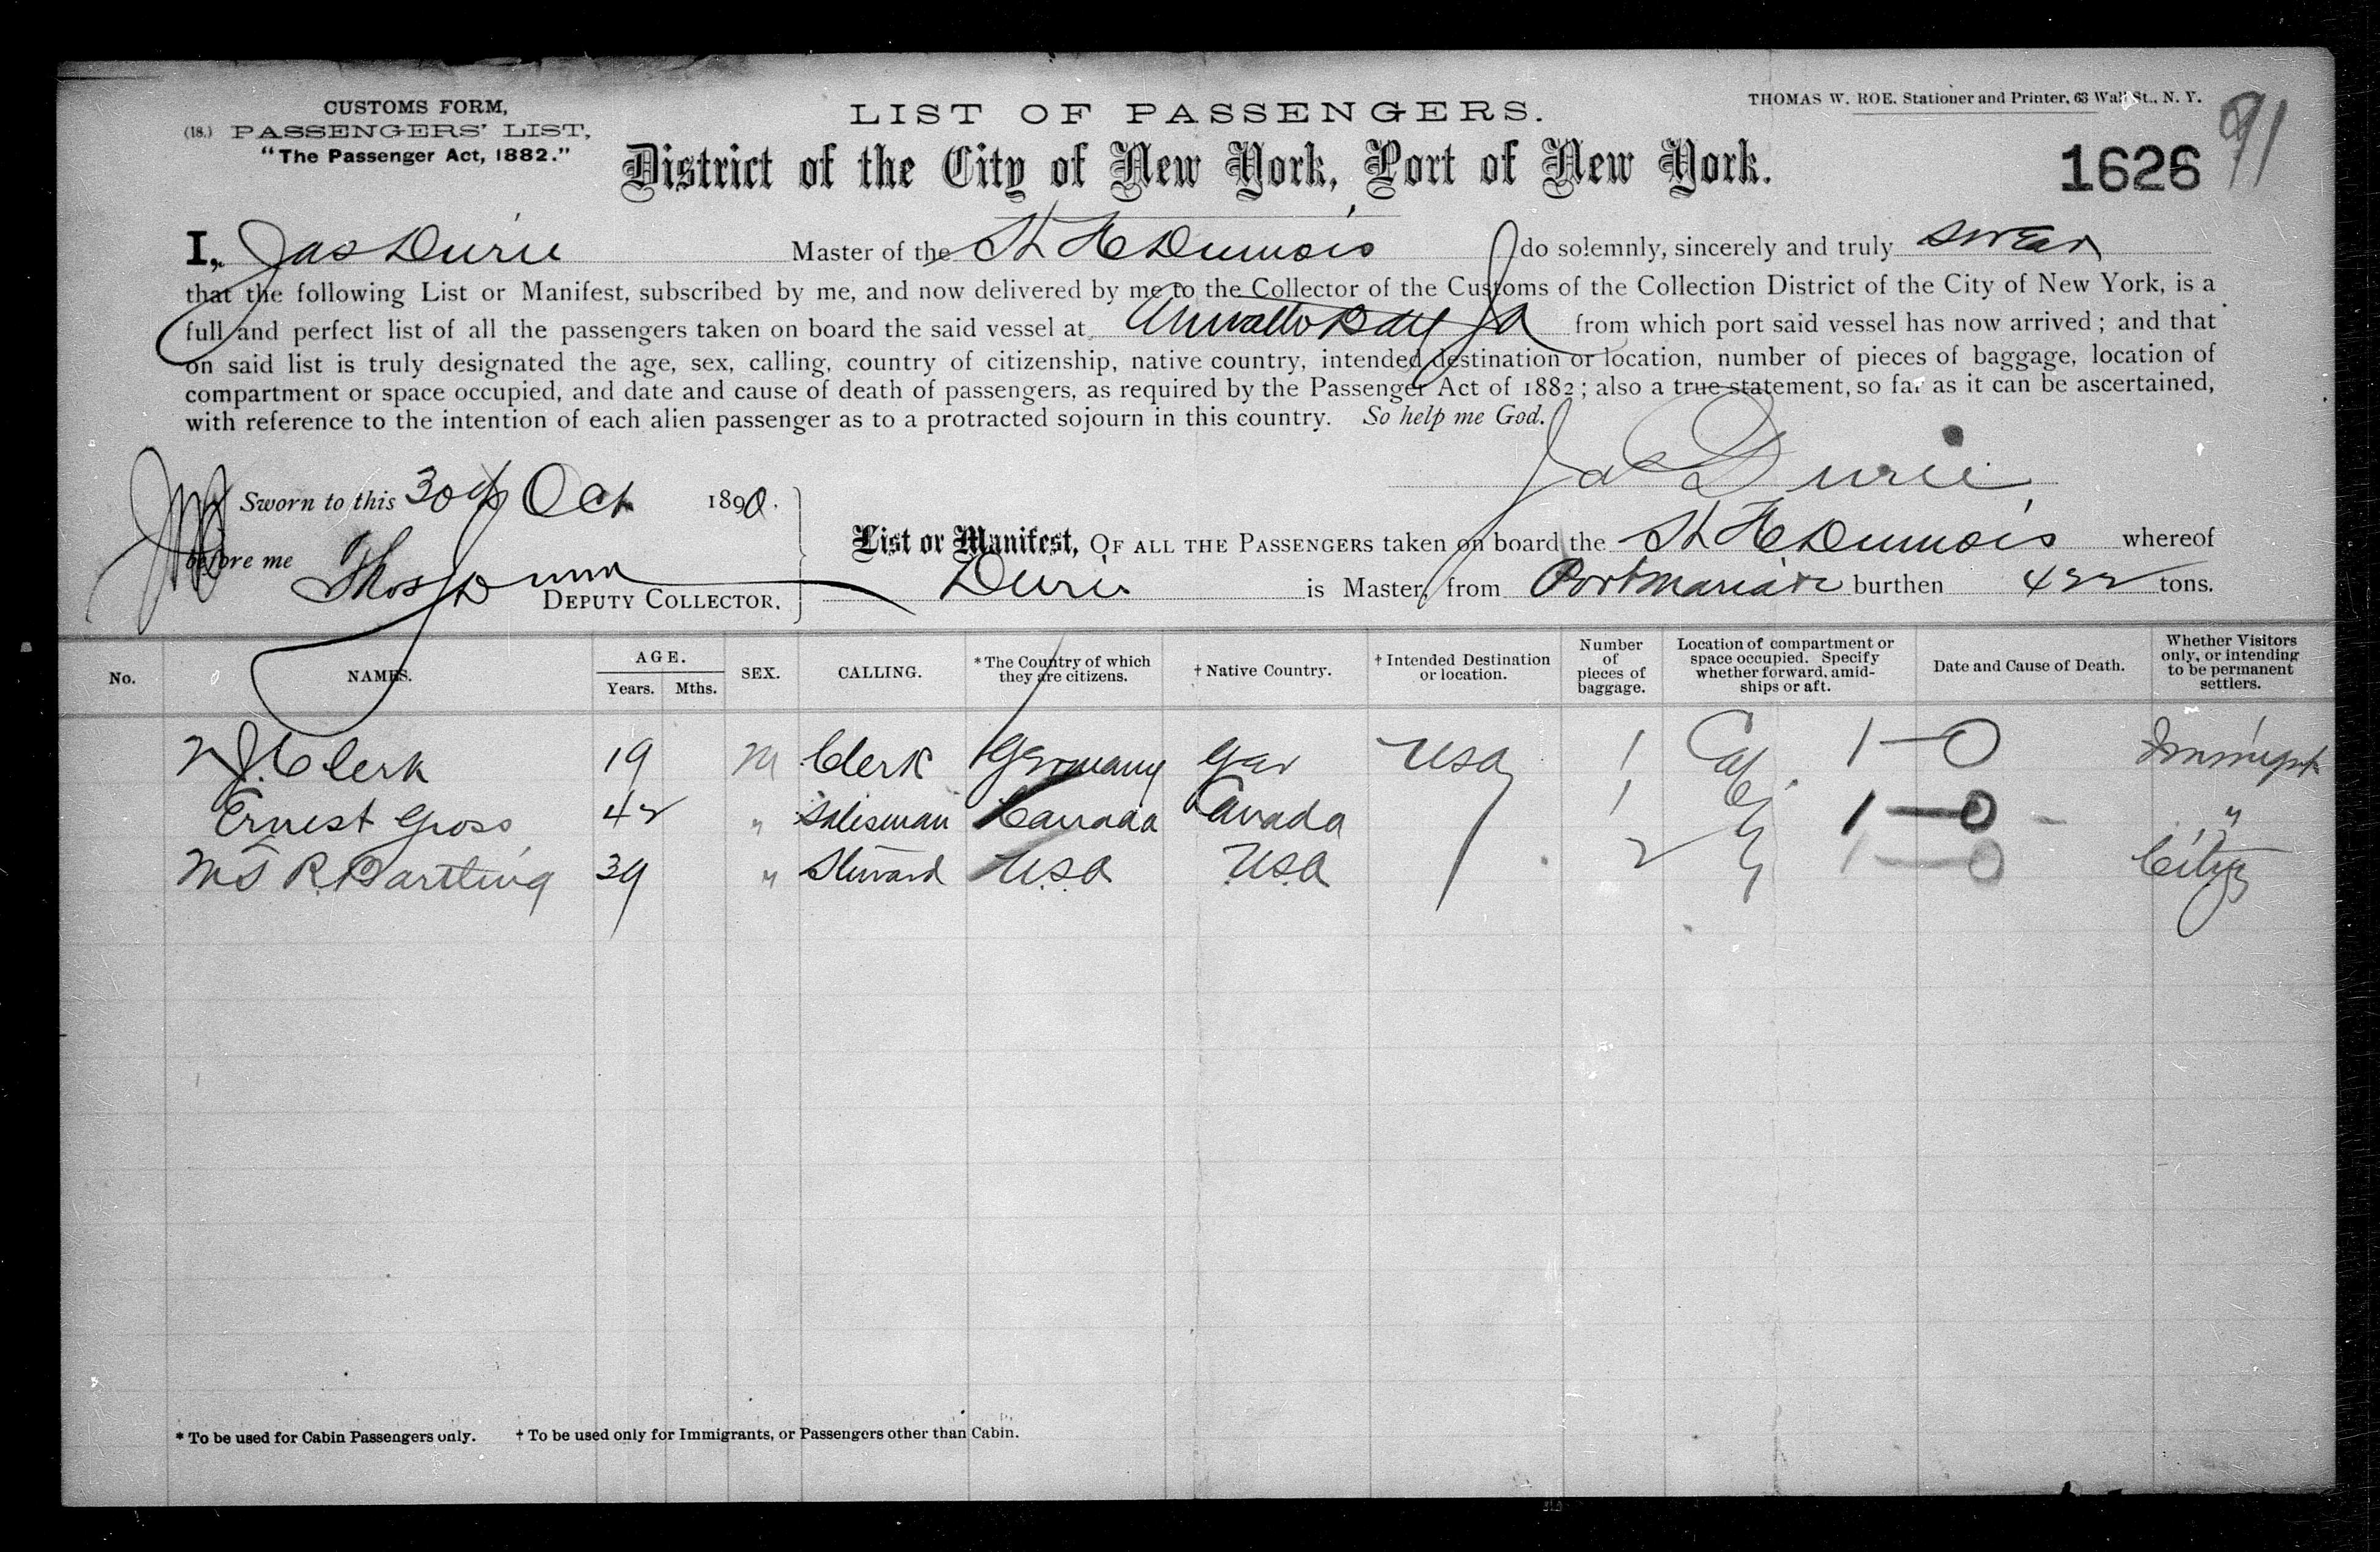 CUSTOMS FORM,
(18.) PASSENGERS' LIST,
"The Passenger Act, 1882."
LIST OF PASSENGERS.
THOMAS W. ROE. Stationer and Printer, 63 Wall St., N. Y.
District of the City of New York, Port of New York.
1626
91
I, Jas Durie Master of the do solemnly, sincerely and truly swear
that the following List or Manifest, subscribed by me, and now delivered by me to the Collector of the Customs of the Collection District of the City of New York, is a
full and perfect list of all the passengers taken on board the said vessel at Bay Ja from which port said vessel has now arrived; and that
on said list is truly designated the age, sex, calling, country of citizenship, native country, intended destination or location, number of pieces of baggage, location of
compartment or space occupied, and date and cause of death of passengers, as required by the Passenger Act of 1882; also a true statement, so far as it can be ascertained,
with reference to the intention of each alien passenger as to a protracted sojourn in this country. So help me God.
Jas Durie
Sworn to this 30th Oct 1890.
before me Thos Dunn
DEPUTY COLLECTOR.
List or Manifest, OF ALL THE PASSENGERS taken on board the whereof
Durie is Master, from burthen 422 tons.
No. NAMES. AGE. Years. Mths. SEX. CALLING. *The Country of which they are citizens. † Native Country. † Intended Destination or location. Number of pieces of baggage. Location of compartment or space occupied. Specify whether forward, amidships or aft. Date and Cause of Death. Whether Visitors only, or intending to be permanent settlers.
Clerk 19 M Clerk Germany Ger USA 1 1—0
Ernest Gross 42 " Salesman Canada Canada 1 1—0 "
R. Bartling 39 " Steward U.S.A U.S.A 2 1—0
* To be used for Cabin Passengers only. † To be used only for Immigrants, or Passengers other than Cabin.